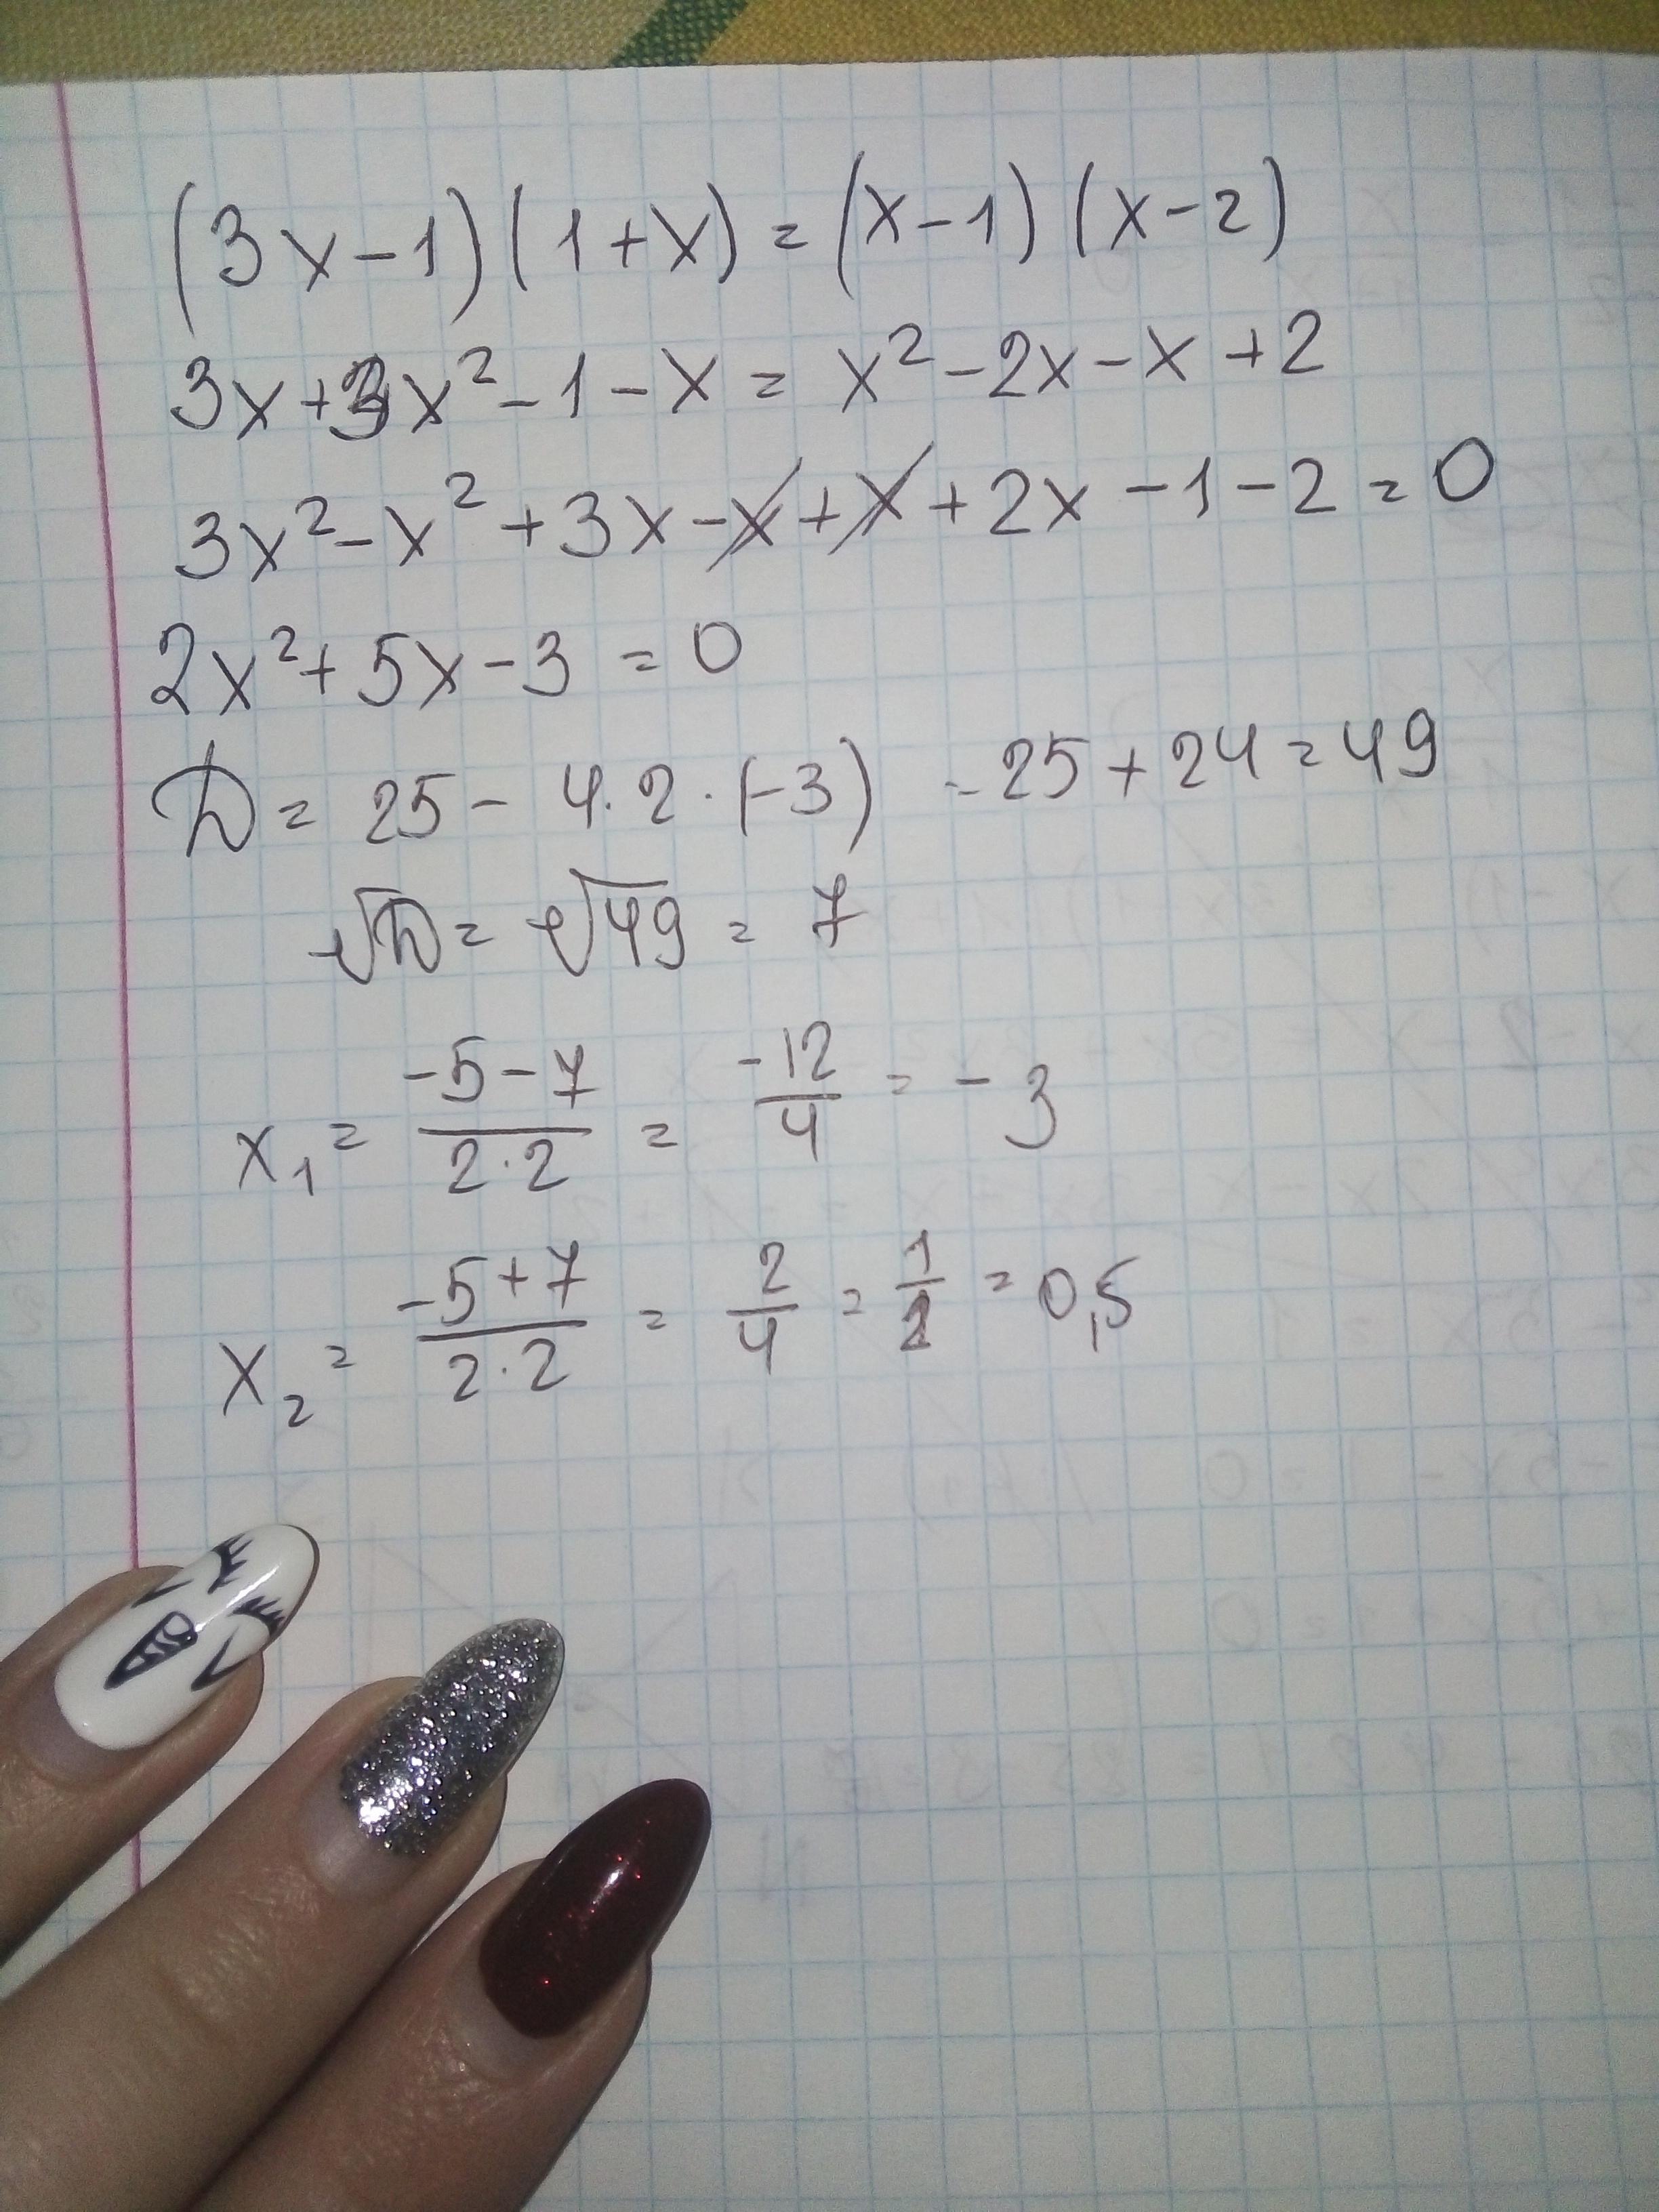 (3x-1)(1+x)=(x-1)(x-2)
3x+3x²-1-x=x²-2x-x+2
3x²-x²+3x-x+x+2x-1-2=0
2x²+5x-3=0
D=25-4·2·(-3)=25+24=49
√D=√49=7
x₁=(-5-7)/(2·2)=-12/4=-3
x₂=(-5+7)/(2·2)=2/4=1/2=0,5